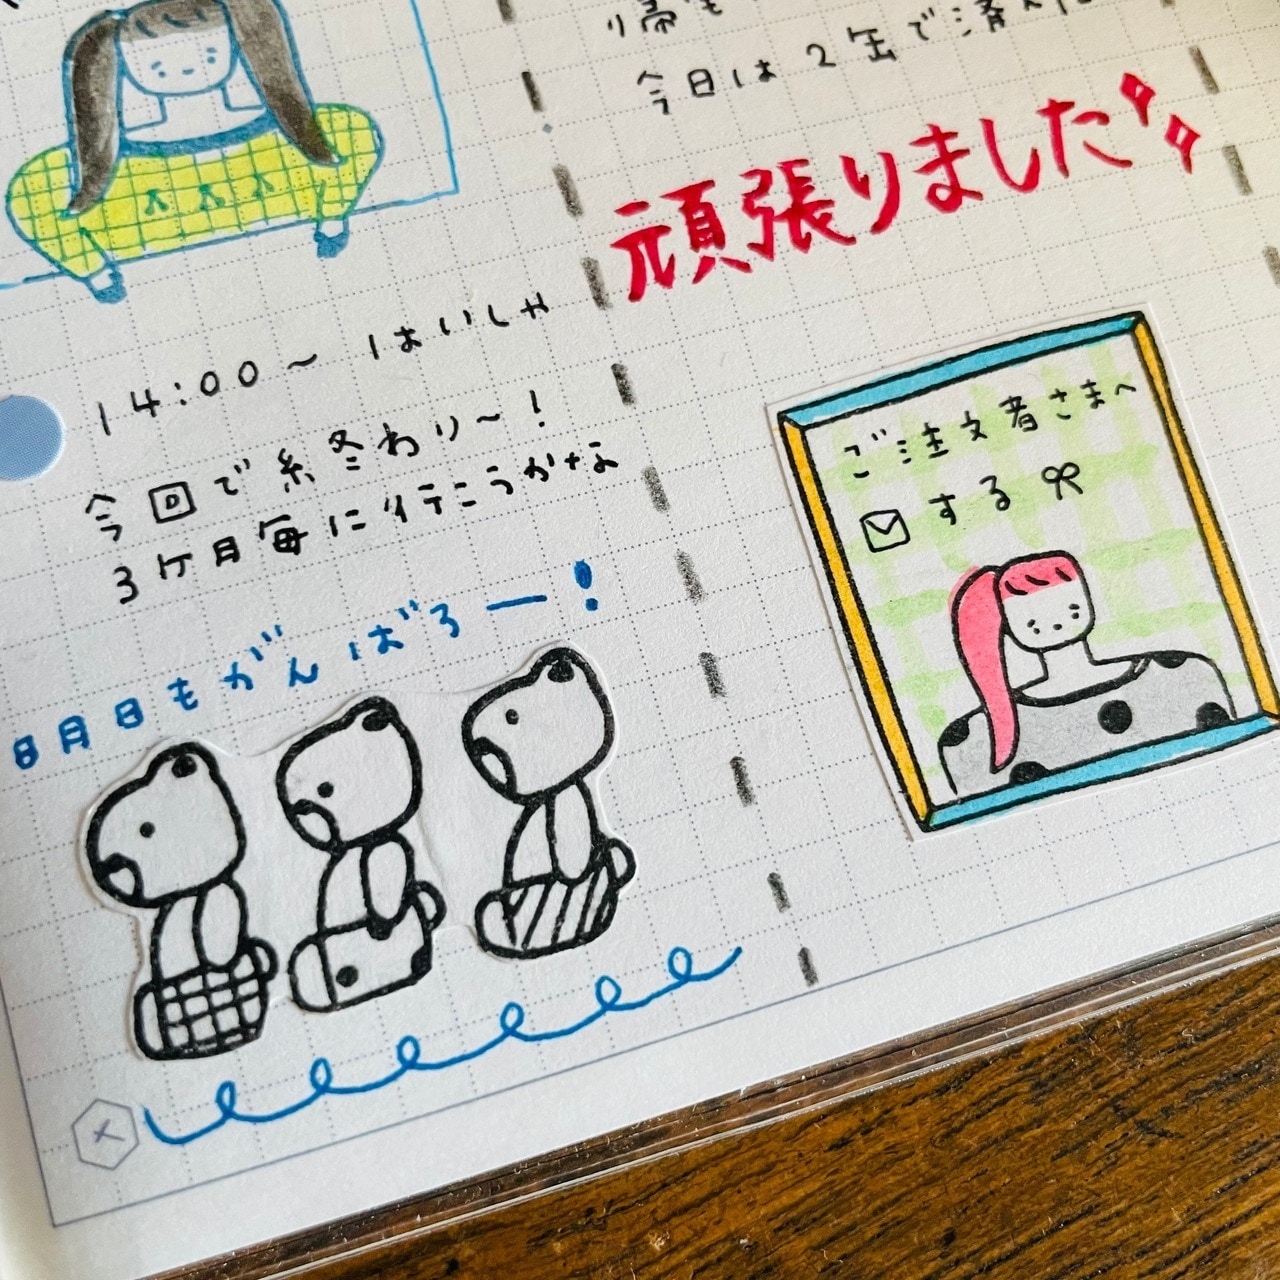 14:00〜 はいしゃ
今回で終わり〜!
3ヶ月毎に行こうかな
8月日もがんばろー!
り帰も
今日は2缶で済んだ
頑張りました
ご注文者さまへ
する